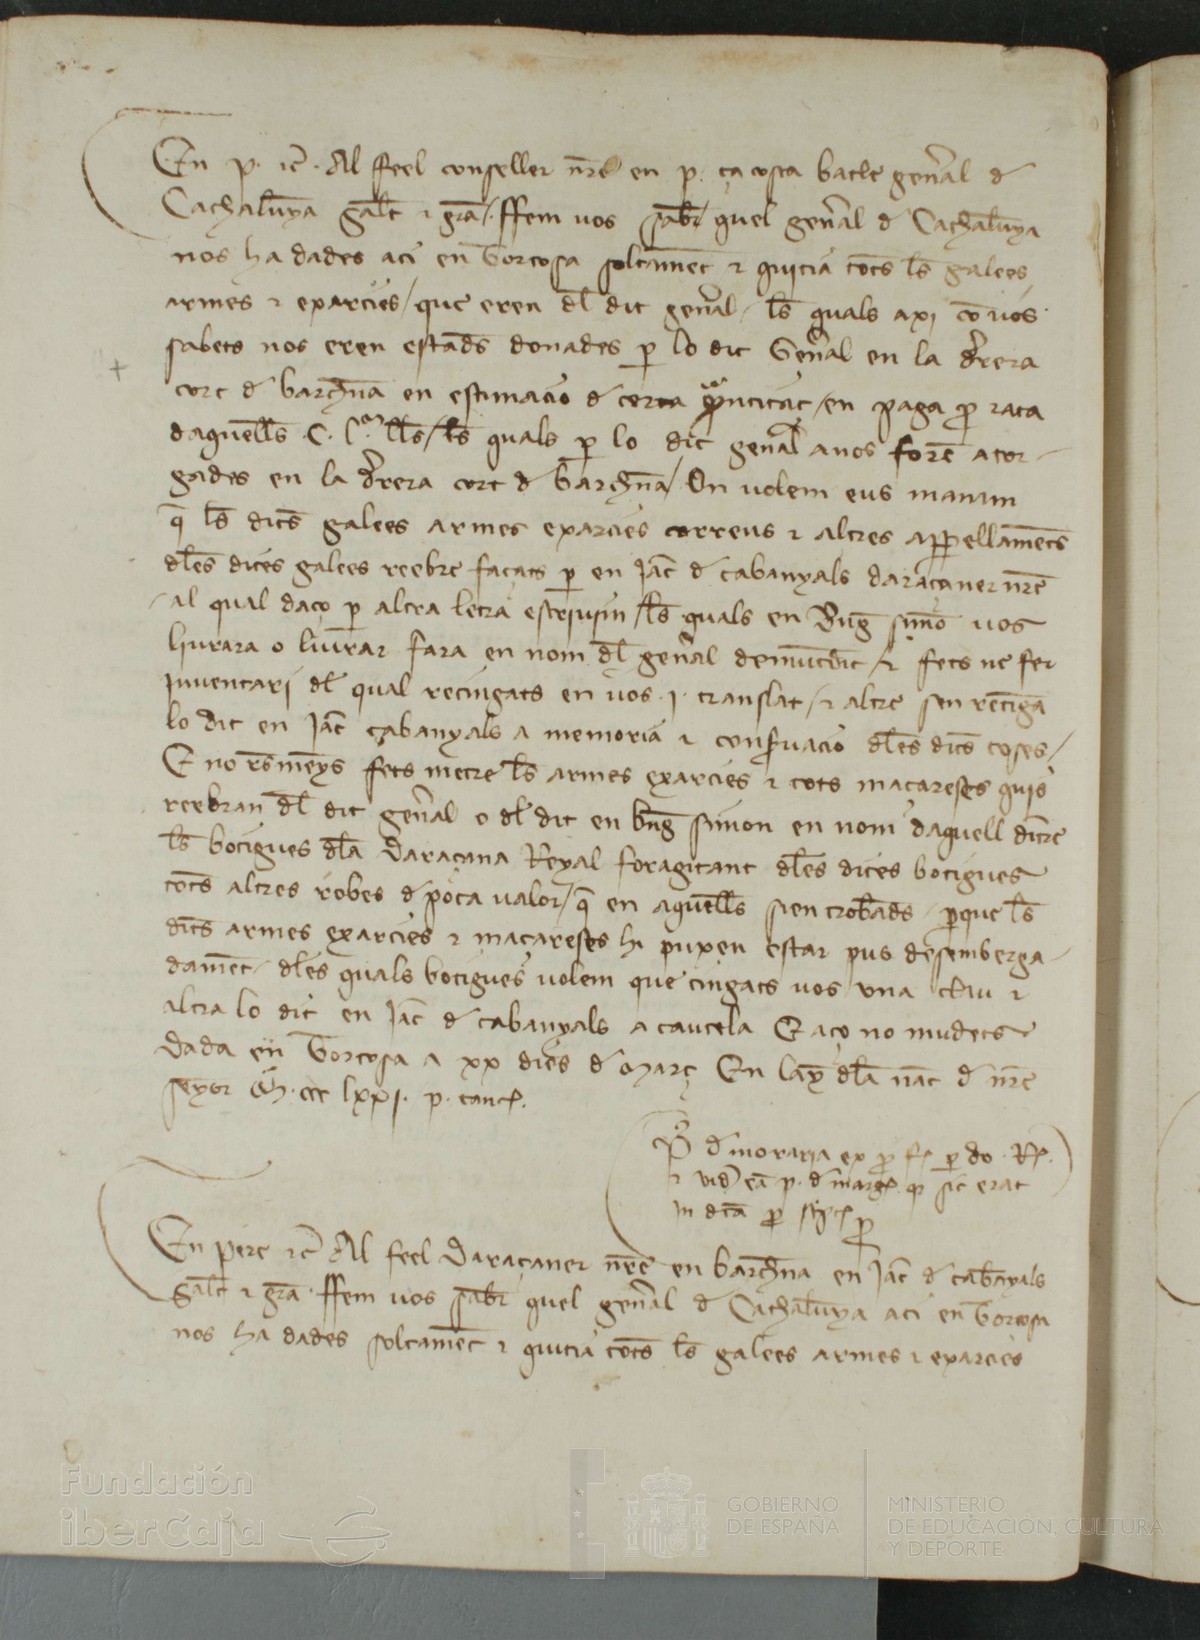 En p. etc. Al feel conseller nr̄e en p. ça costa batle gen̄al d
Cathalūya salt̄ ⁊ gr̄a / ffem uos sab̄ quel gen̄al d Cathalūya
nos ha dades aci en Tortosa soltamēt ⁊ quitia tots l̄s galees
armes ⁊ exarcies / que eren dl̄ dit gen̄al / l̄s quals axi cō uos
sabets nos eren estad̄s donades p̄ lo dit Gen̄al en la dr̄rera
cort d barch̄na en estimacio d certa quantitat / en paga p̄ rata
daquell̄s C. l.ᵐ ll̄s / l̄s quals p̄ lo dit gen̄al a nos forē ator-
gades en la dr̄rera cort d barch̄na / On uolem eus manam
q̄ l̄s dit̄s galees armes exarcies correus ⁊ altres appellamēts
dl̄es dites galees reebre façats p̄ en Jac̄ d cabanyals daraçaner nr̄e
al qual daço p̄ altra letra escriuim / l̄s quals en Bn̄g simō uos
liurara o liurar fara en nom dl̄ gen̄al demūtdit / ⁊ fets ne fer
inuentari dl̄ qual retingats en uos .j. translat / ⁊ altre sen retēga
lo dit en Jac̄ çabanyals a memoria ⁊ conſ̄uacio dl̄es dit̄s coses /
E no r̄s meȳs fets metre l̄s armes exarcies ⁊ tots macareses quis
reebran dl̄ dit gen̄al o dl̄ dit en bn̄g simon en nom daquell dīt̄re
l̄s botigues dl̄a daraçana Reyal foragitant dl̄es dites botigues
tots altres robes d poca valor / q̄ en aquell̄s sien trobad̄s / p̄que l̄s
dit̄s armes exarcies ⁊ macareses hi puxen estar pus desemberga-
damēt / dl̄es quals botigues uolem que tingats uos una clau ⁊
altra lo dit en Jac̄ d cabanyals a cautela E aço no mudets
Dada en Tortosa a xx dies d març En lāy dl̄a nat̄ d nr̄e
seȳor M. ccc lxxj. p. canc̄.
d moraria ex p̄ f̄ p̄ do. R̄.
⁊ uid̄ eā p. d marḡ. q̄ sic erat
In dc̄a
En pere etc̄ Al feel Daraçaner nr̄e en barch̄na en Jac̄ d cabanyals
Salt̄ ⁊ gr̄a ffem uos sab̄ quel gen̄al d Cathalūya aci en Tortosa
nos ha dades soltamēt ⁊ quitia tots l̄s galees armes ⁊ exarcies
Fundación
iberCaja
GOBIERNO
DE ESPAÑA
MINISTERIO
DE EDUCACIÓN, CULTURA
Y DEPORTE